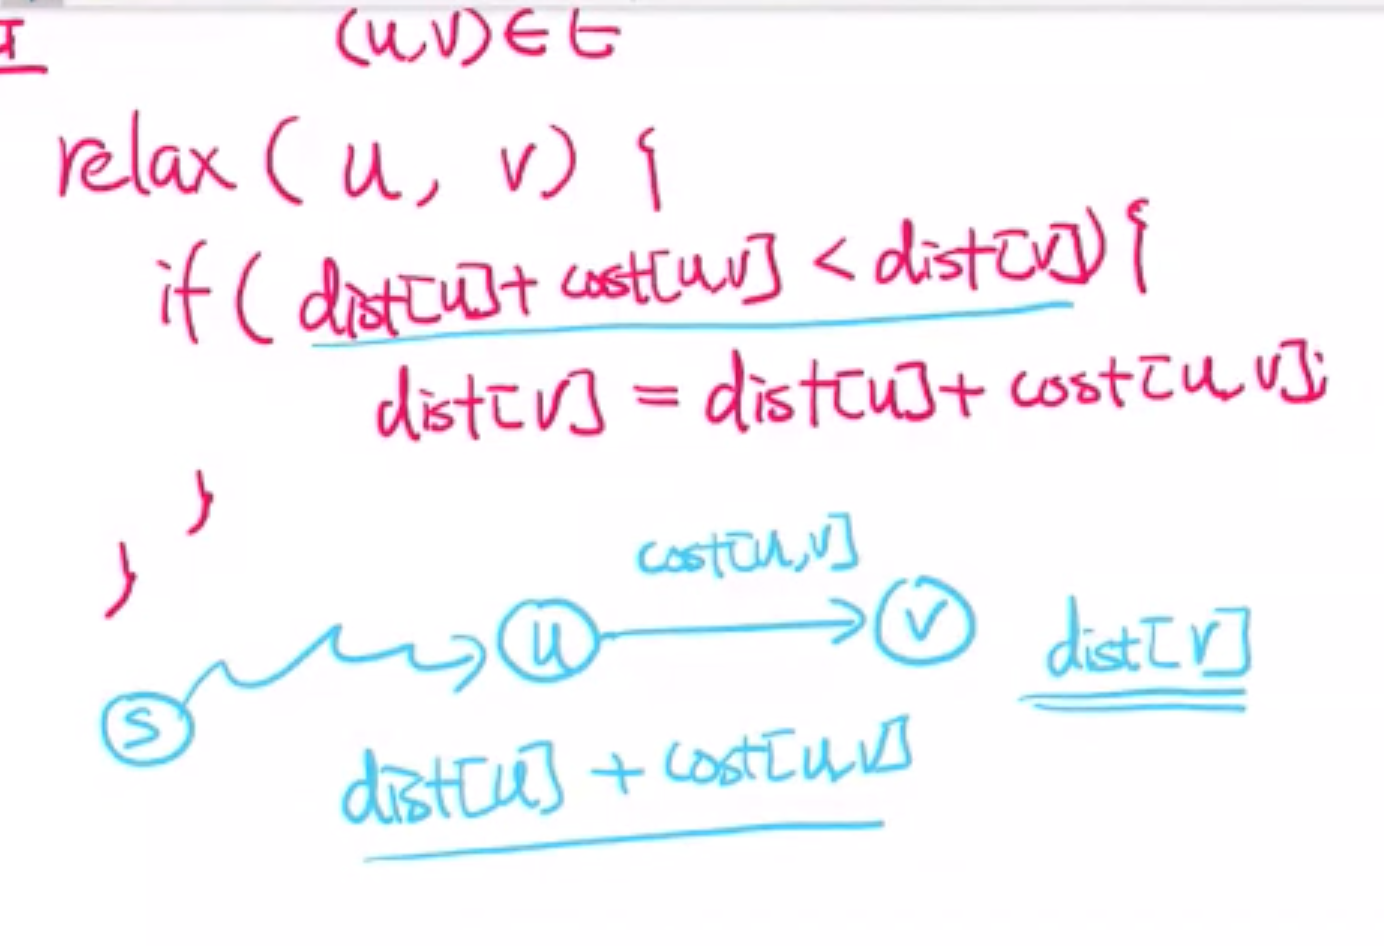 (u,v)∈E
relax ( u, v) {
if ( dist[u]+ cost[u,v] < dist[v]) {
dist[v] = dist[u]+ cost[u,v];
}
}
cost[u,v]
s
u
v
dist[v]
dist[u] + cost[u,v]